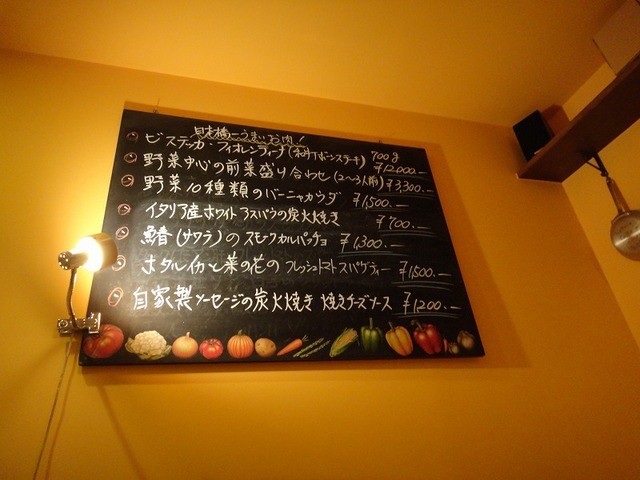 日本橋一うまいお肉!
ビステッカ・フィオレンティーナ(和牛Tボーンステーキ) 700g ¥12,000.-
野菜中心の前菜盛り合わせ(2〜3人前) ¥3,300.-
野菜10種類のバーニャカウダ ¥1,500.-
イタリア産ホワイトアスパラの炭火焼き ¥700.-
鰆(サワラ)のスモークカルパッチョ ¥1,300.-
ホタルイカと菜の花のフレッシュトマトスパゲティー ¥1,500.-
自家製ソーセージの炭火焼き 焼きチーズソース ¥1,200.-